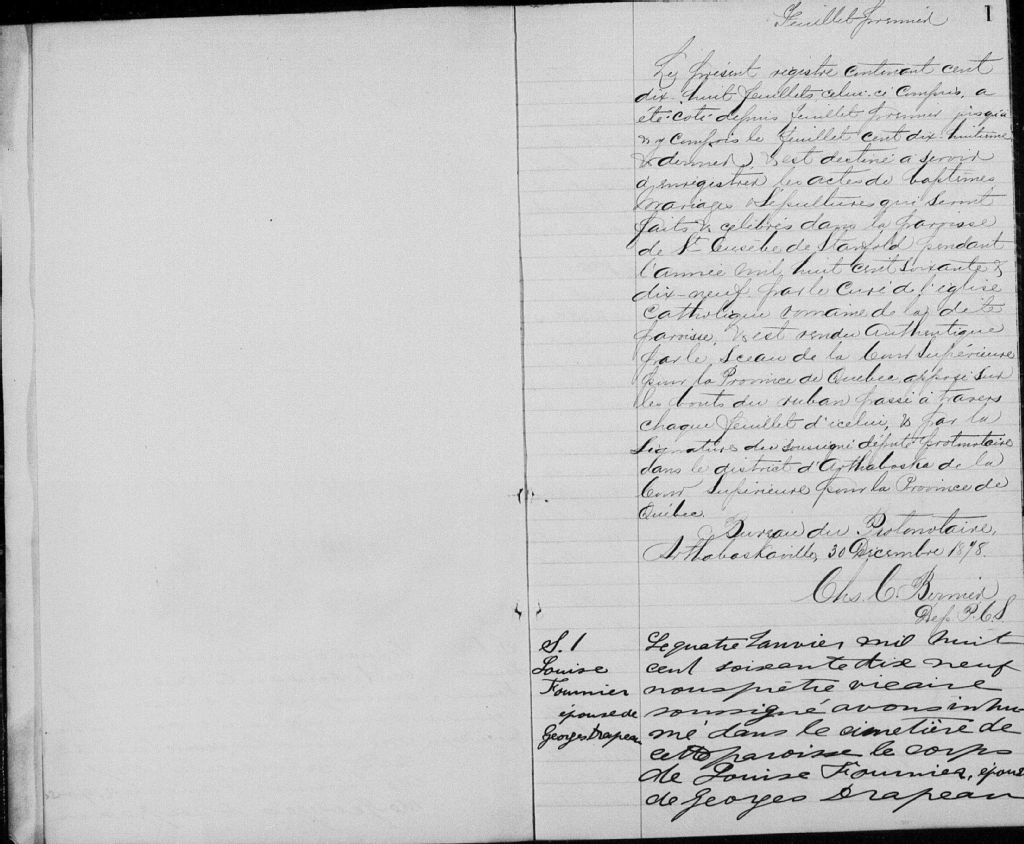 Feuillet premier
1
Le présent registre contenant cent
dix-huit feuillets, celui-ci compris, a
été coté depuis feuillet premier jusqu'à
& y compris le feuillet cent dix-huitième
& dernier, & est destiné à servir
d'enregistrer les actes de baptêmes
mariages & sépultures qui seront
faits & célébrés dans la paroisse
de St Eusèbe de Stanfold pendant
l'année mil huit cent soixante &
dix-neuf par le Curé de l'église
Catholique romaine de la dite
paroisse, & est rendu Authentique
par le Sceau de la Cour Supérieure
pour la Province de Québec apposé sur
les bouts du ruban passé à travers
chaque feuillet d'icelui, & par la
Signature du soussigné député protonotaire
dans le district d'Arthabaska de la
Cour Supérieure pour la Province de
Québec.
Bureau du Protonotaire,
Arthabaskaville, 30 Décembre 1878.
Chs. C. Bernier
Dep. P. C. S.
S. 1
Louise
Fournier
épouse de
Georges Drapeau
Le quatre Janvier mil huit
cent soixante dix neuf
nous prêtre vicaire
soussigné avons inhu
mé dans le cimetière de
cette paroisse le corps
de Louise Fournier, épouse
de Georges Drapeau